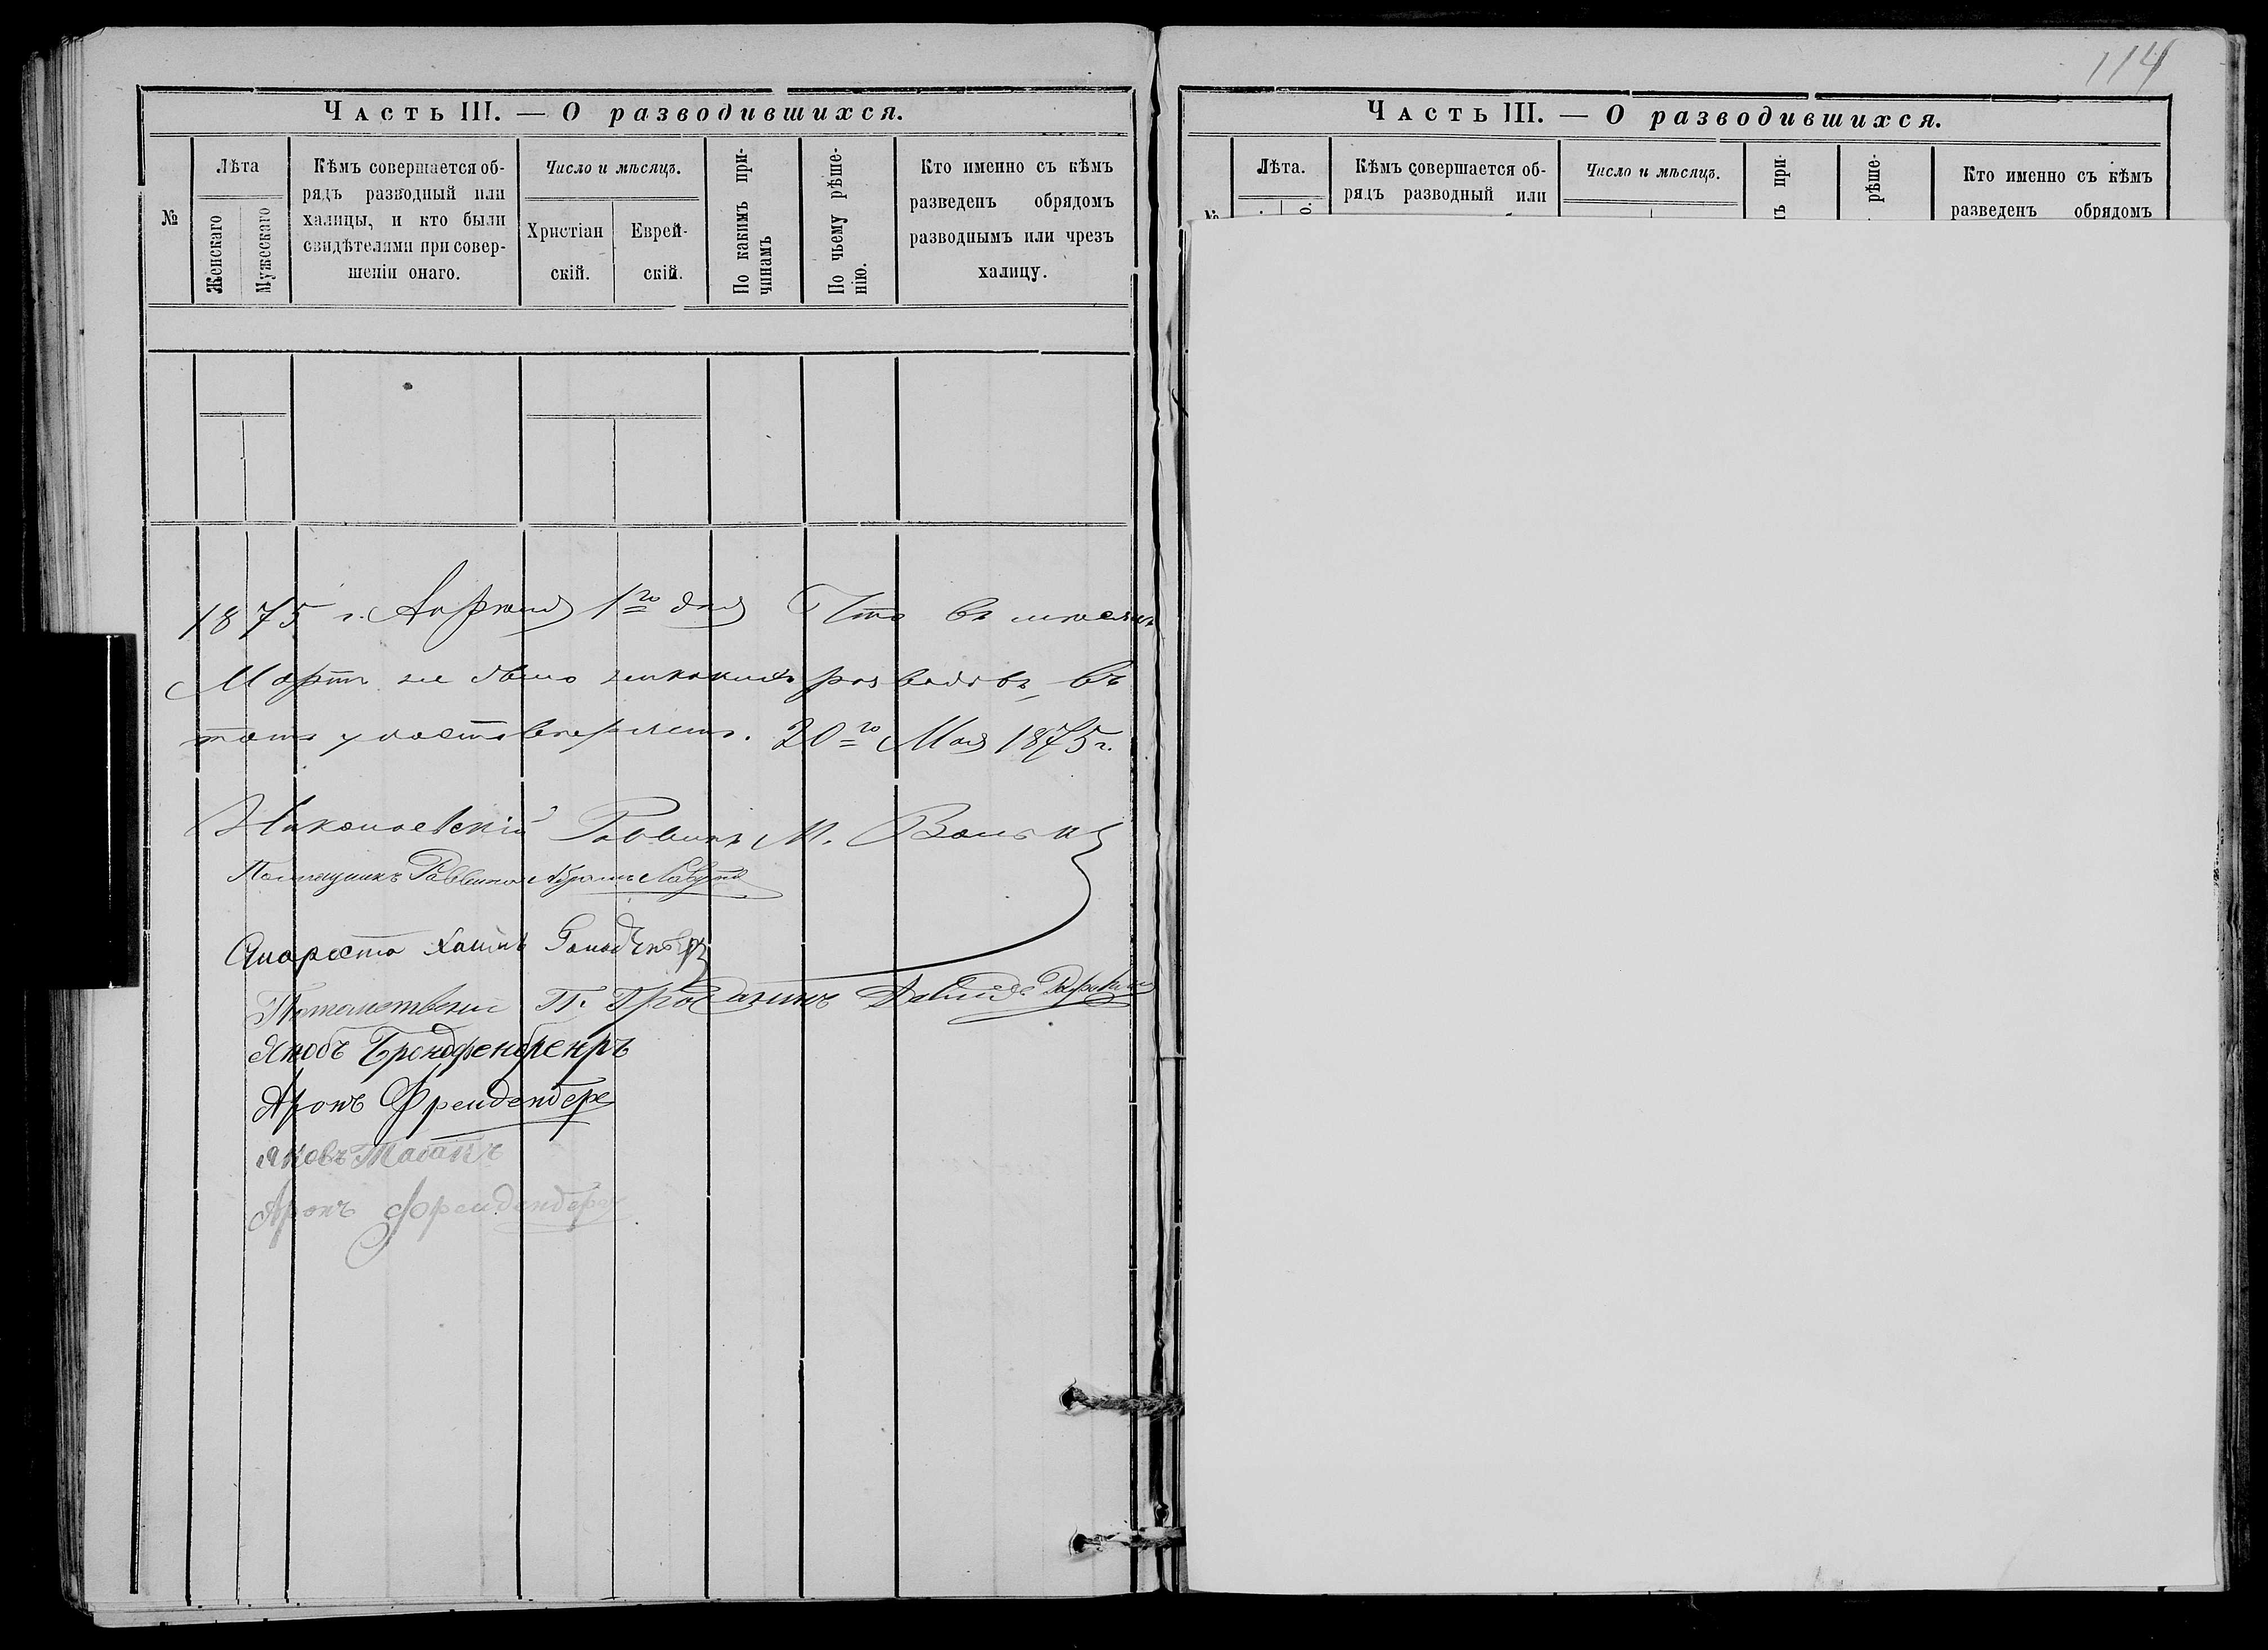 114
Часть III. — О разводившихся.
№
Лѣта
Женскаго
Мужескаго
Кѣмъ совершается об-
рядъ разводный или
халицы, и кто были
свидѣтелями при совер-
шеніи онаго.
Число и мѣсяцъ.
Христіан
скій.
Еврей-
скій.
По какимъ при-
чинамъ
По чьему рѣше-
нію.
Кто именно съ кѣмъ
разведенъ обрядомъ
разводнымъ или чрезъ
халицу.
1875 г. Апрѣля 1го дня Что въ мѣсяцѣ
Мартѣ не было никакихъ разводовъ, въ
томъ удостовѣряемъ. 20го Мая 1875 г.
Николаевскій Раввинъ М.
Помощникъ Раввина Абрамъ
Староста Хаимъ
Потомственный П. Гражданинъ Давидъ
Якобъ
Аронъ Фрейденберг
Яковъ
Аронъ Фрейденберг
Часть III. — О разводившихся.
№
Лѣта.
Кѣмъ совершается об-
рядъ разводный или
Число и мѣсяцъ.
ъ при-
рѣше-
Кто именно съ кѣмъ
разведенъ обрядомъ